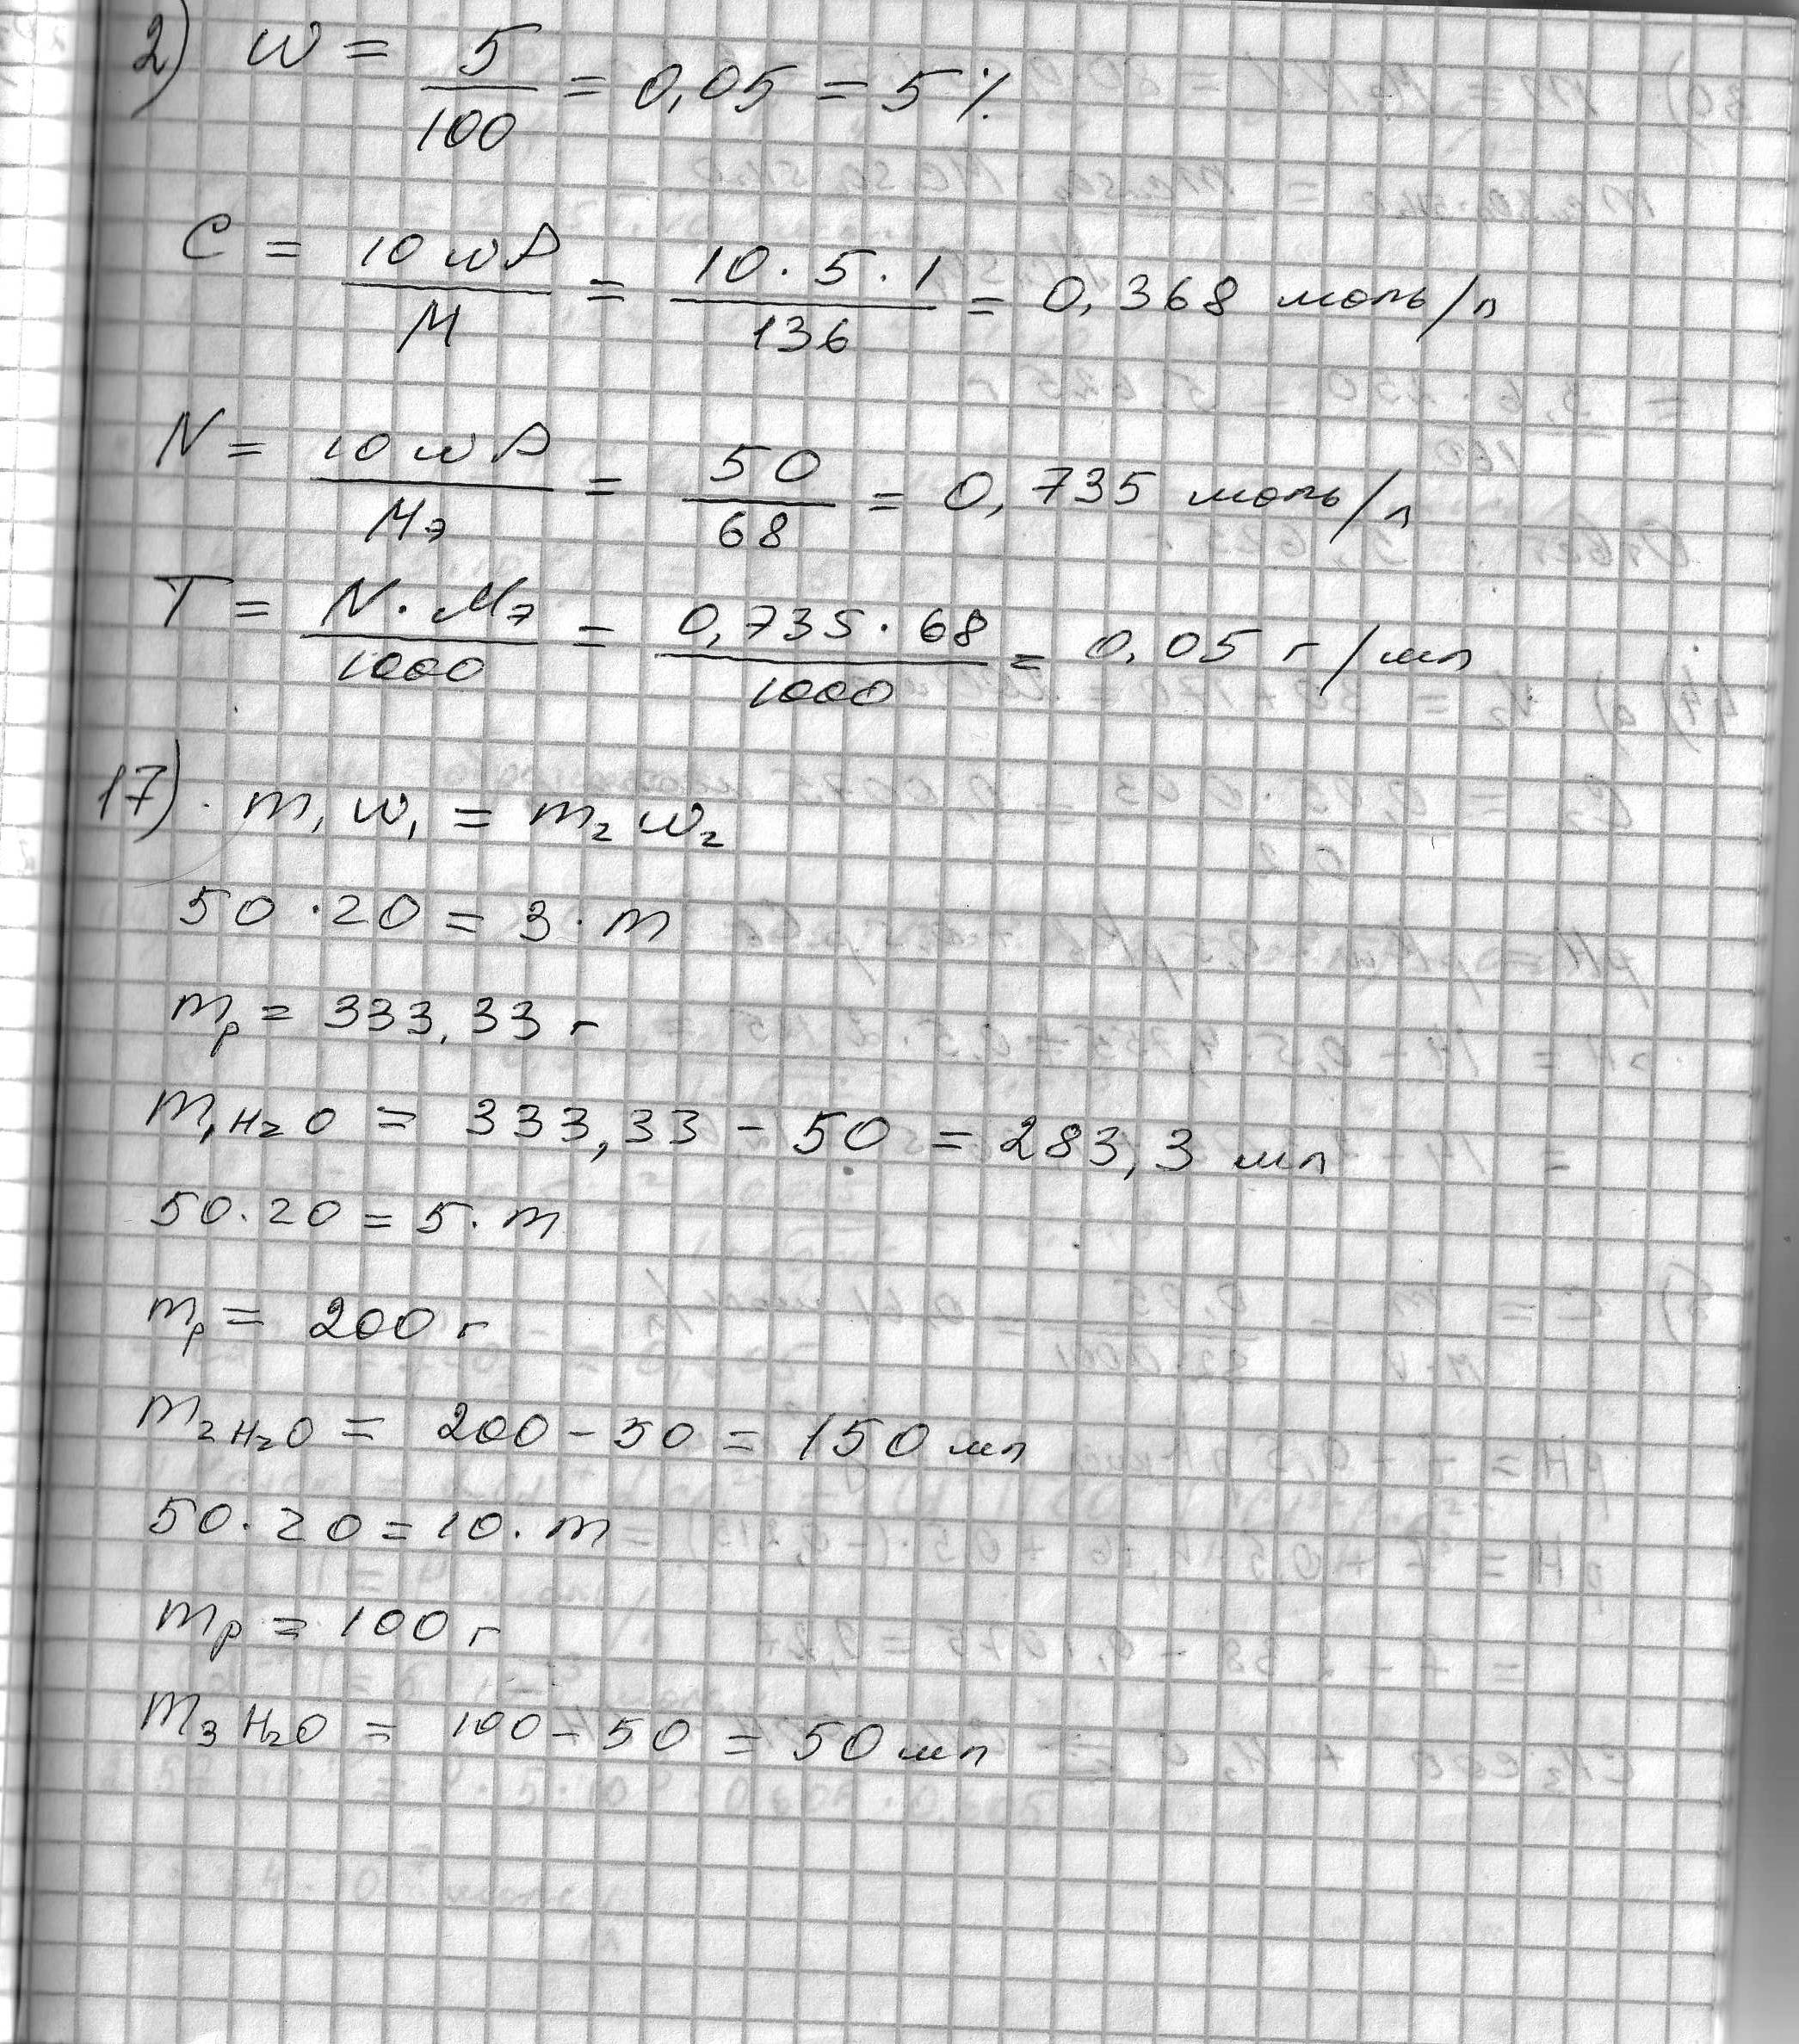 2) W = 5/100 = 0,05 = 5%
C = 10 w ρ / M = 10 · 5 · 1 / 136 = 0,368 моль/л
N = 10 w ρ / Mэ = 50/68 = 0,735 моль/л
T = N · Mэ / 1000 = 0,735 · 68 / 1000 = 0,05 г/мл
17) m₁ w₁ = m₂ w₂
50 · 20 = 3 · m
mр = 333,33 г
m₁ H₂O = 333,33 - 50 = 283,3 мл
50 · 20 = 5 · m
mр = 200 г
m₂ H₂O = 200 - 50 = 150 мл
50 · 20 = 10 · m
mр = 100 г
m₃ H₂O = 100 - 50 = 50 мл